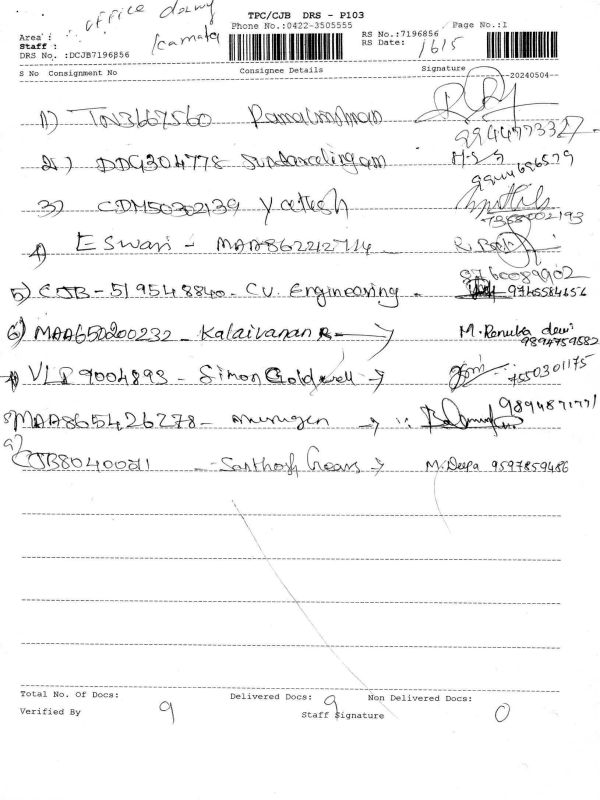 office dewy
Kamala
TPC/CJB DRS - P103
Phone No.:0422-3505555
Page No.:1
Area : :
RS No.:7196856
Staff :
RS Date: 16/5
DRS No. :DCJB7196856
S No Consignment No Consignee Details Signature
20240504
1) TN3667560
9944773327
2) DDG304778 Sundaralingam M.S
3) CDM50302139 Yatish
7358002193
4) Eswari - MAA862212714
9760089902
5) CJB - 519548840 - CV. Engineering - 9746584656
6) MAA650200232 - Kalaivanan R - M. Renuka devi
9894759682
7) VLP9004893 - Simon Goldwell → 7550301175
8) MAA865426278 - murugan → 9894871771
9) CJB80400211 - Santhosh Gears → M. Deepa 9597859486
Total No. Of Docs: 9 Delivered Docs: 9 Non Delivered Docs: 0
Verified By Staff Signature